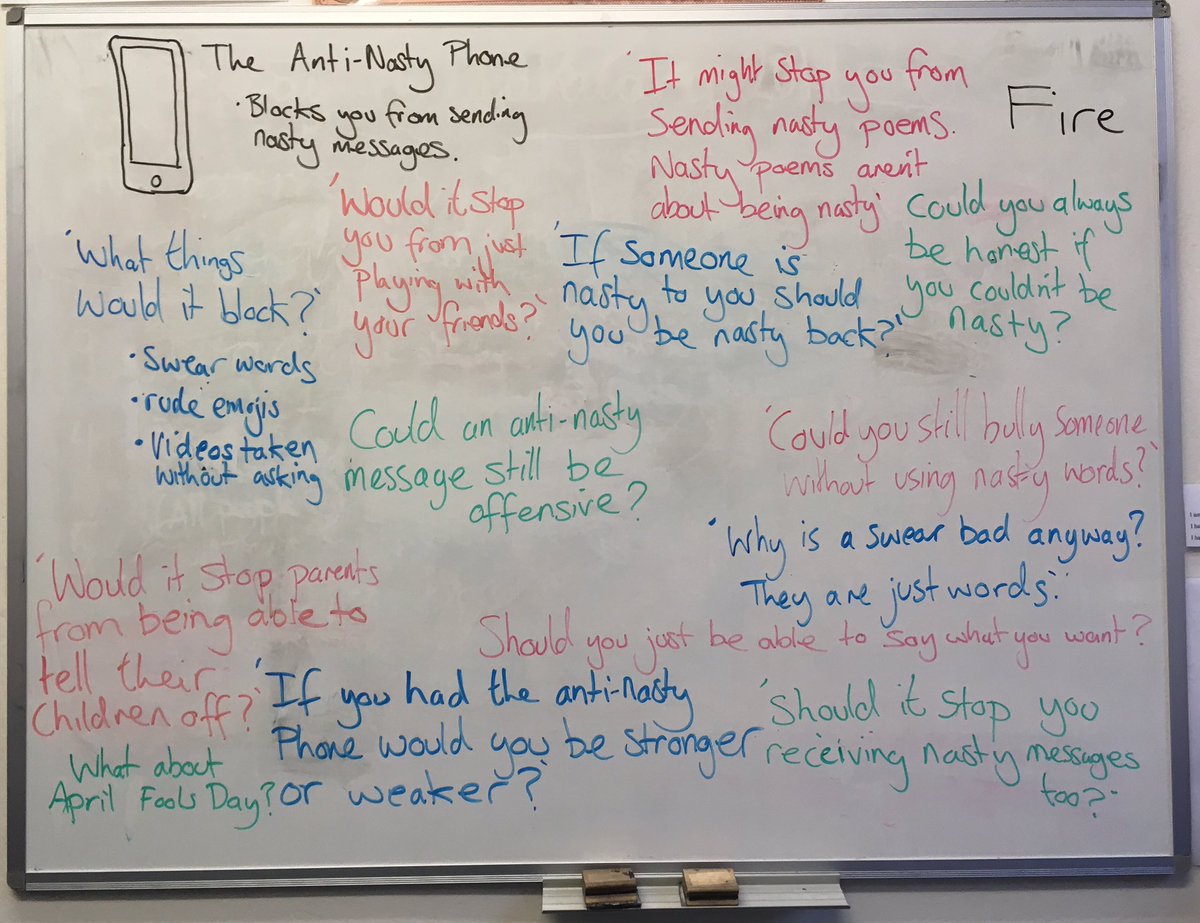 The Anti-Nasty Phone
• Blocks you from sending
nasty messages.
'It might stop you from
sending nasty poems.
Nasty poems aren't
about being nasty'
Fire
'Would it stop
you from just
playing with
your friends?'
'What things
would it block?'
• Swear words
• rude emojis
• Videos taken
without asking
'If someone is
nasty to you should
you be nasty back?'
Could you always
be honest if
you couldn't be
nasty?
Could an anti-nasty
message still be
offensive?
'Could you still bully someone
without using nasty words?'
'Why is a swear bad anyway?
They are just words.'
'Would it stop parents
from being able to
tell their
children off?'
Should you just be able to say what you want?
'If you had the anti-nasty
Phone would you be stronger
or weaker?'
'Should it stop you
receiving nasty messages
too?'
What about
April Fools Day?